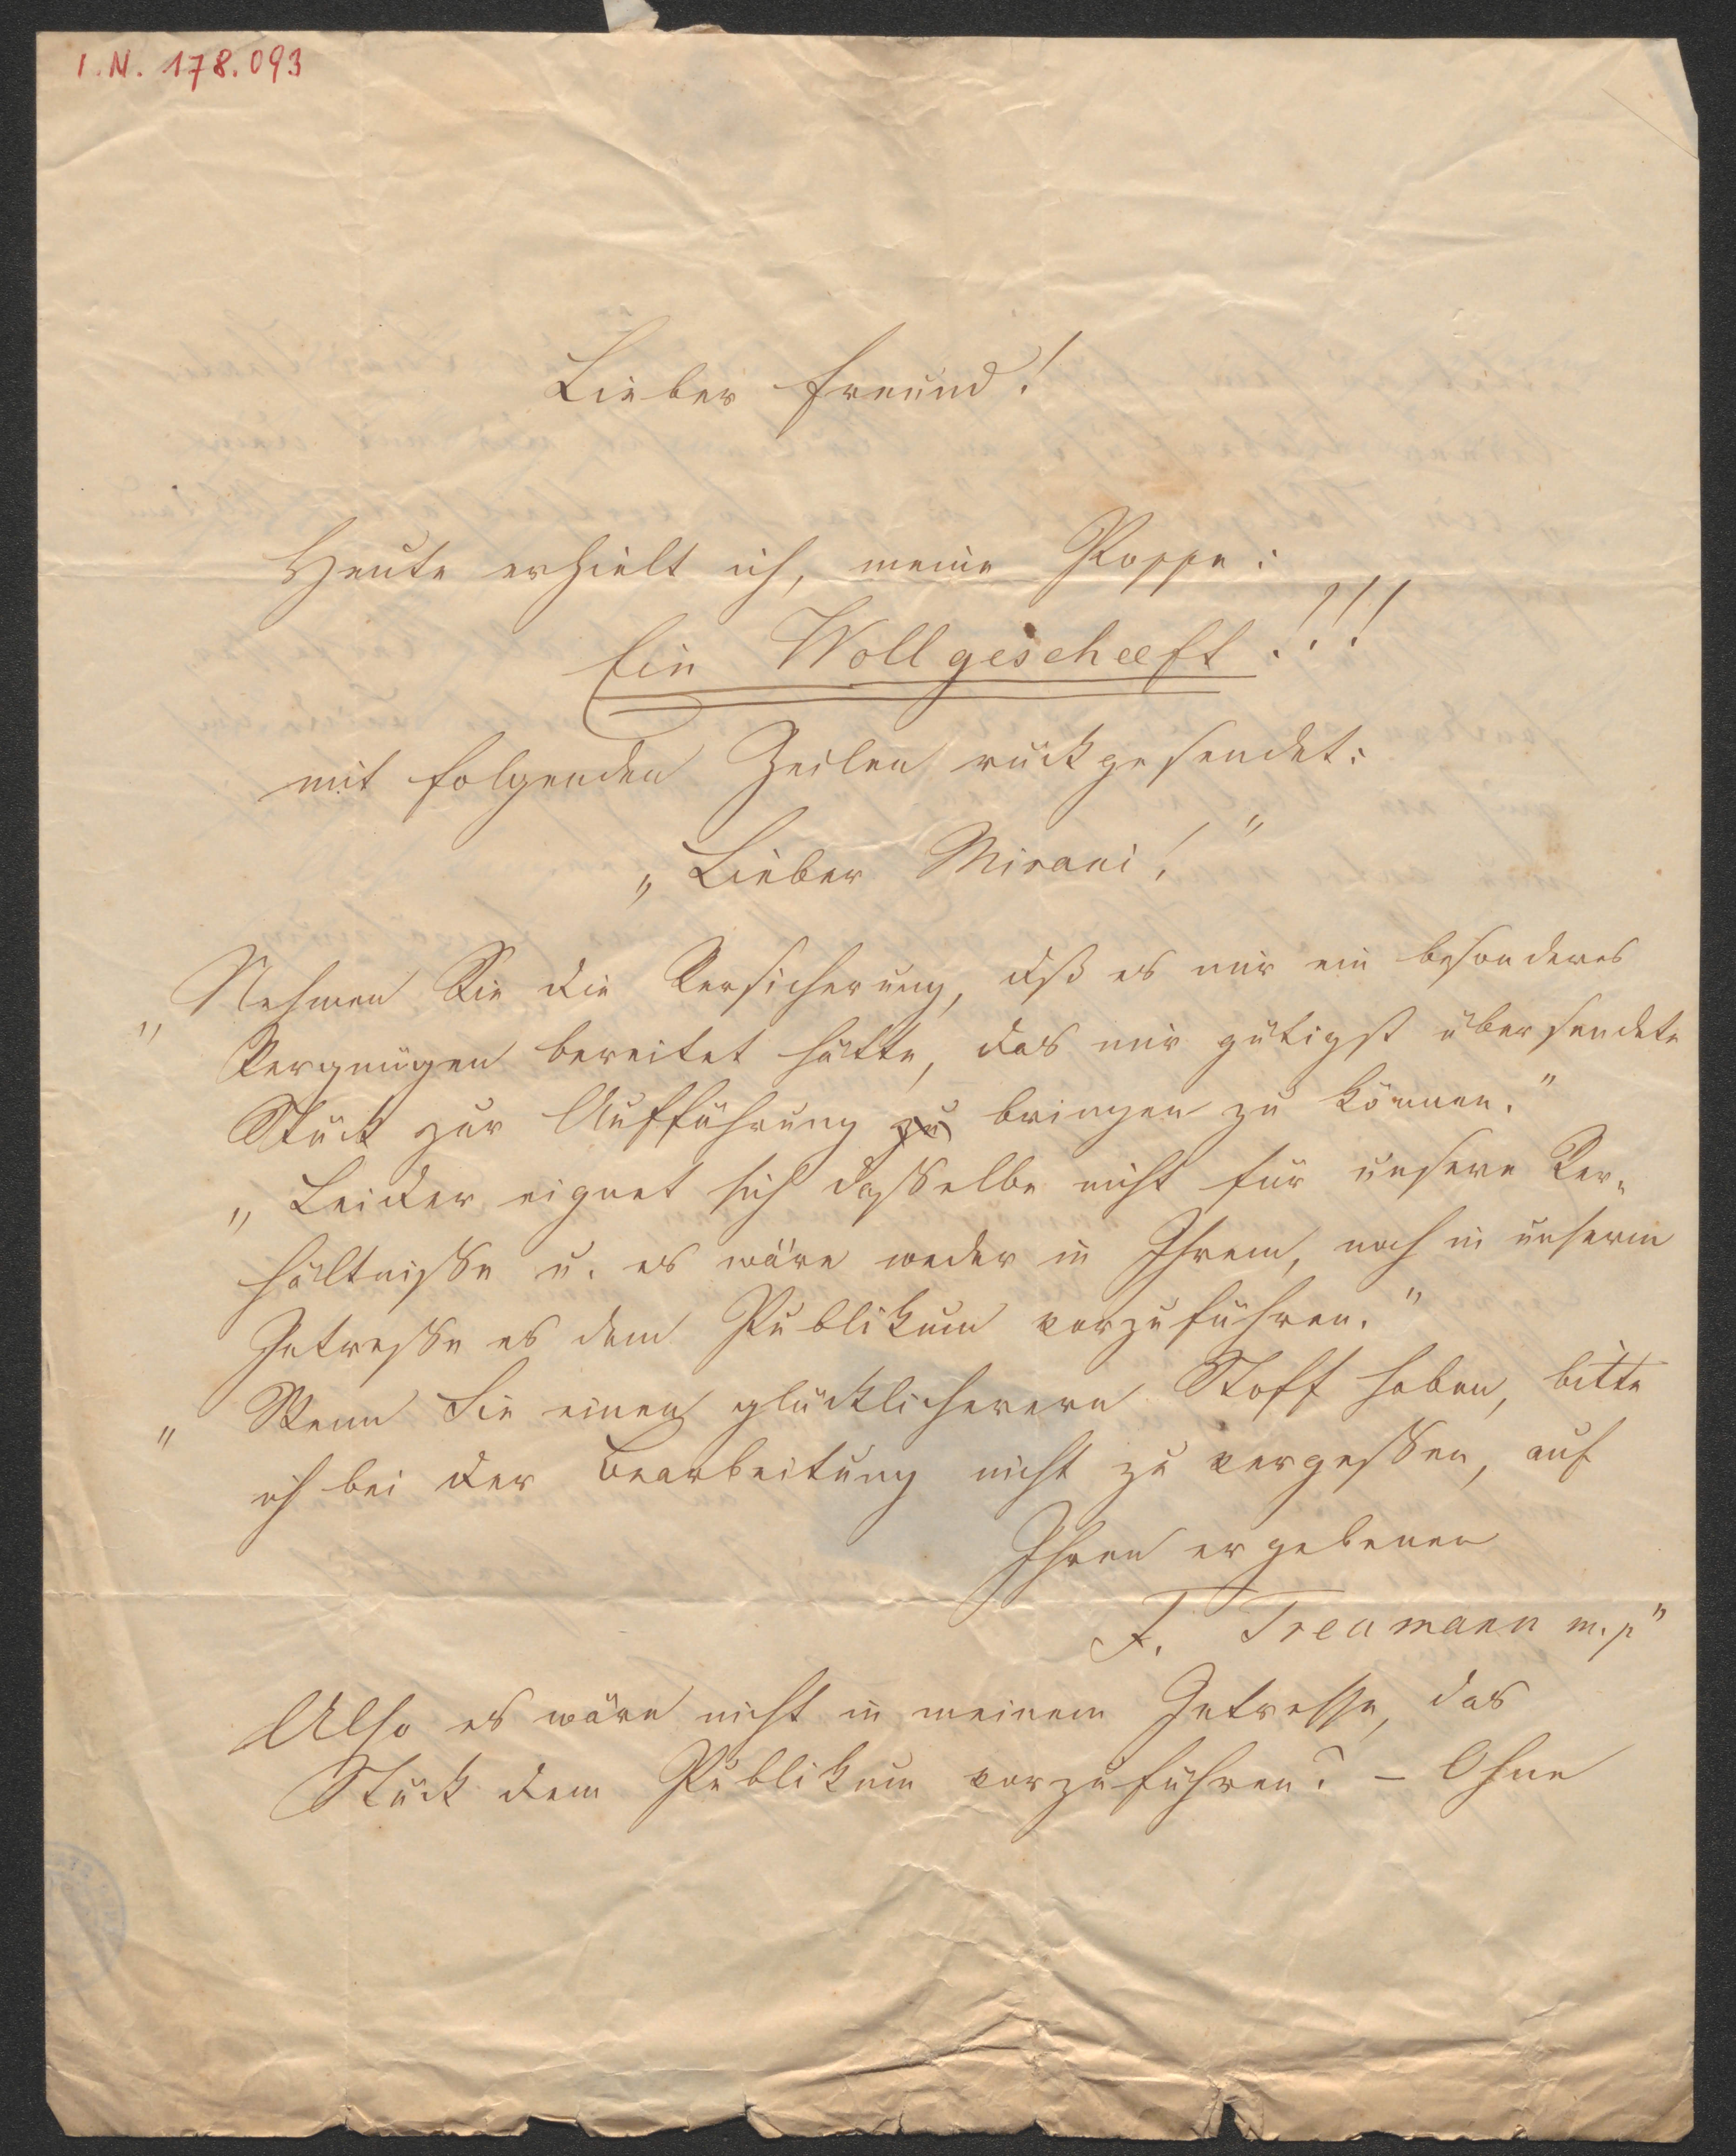 I.N. 178.093
Lieber Freund!
Heute erhielt ich, meine Posse:
Ein Wollgescheeft!!!
mit folgenden Zeilen rückgesendet:
„Lieber Mirani!"
„Nehmen Sie die Versicherung, dß es mir ein besonderes
Vergnügen bereitet hätte, das mir gütigst übersendete
Stück zur Aufführung zu bringen zu können."
„Leider eignet sich daßselbe nicht für unsere Ver-
hältnisse u. es wäre weder in Ihrem, noch in unserm
Intresse es dem Publikum vorzuführen."
„Wenn Sie einen glücklicheren Stoff haben, bitte
ich bei der Bearbeitung nicht zu vergessen, auf
Ihren ergebenen
F. Treumann m.p"
Also es wäre nicht in meinem Intresse, das
Stück dem Publikum vorzuführen? – Ohne